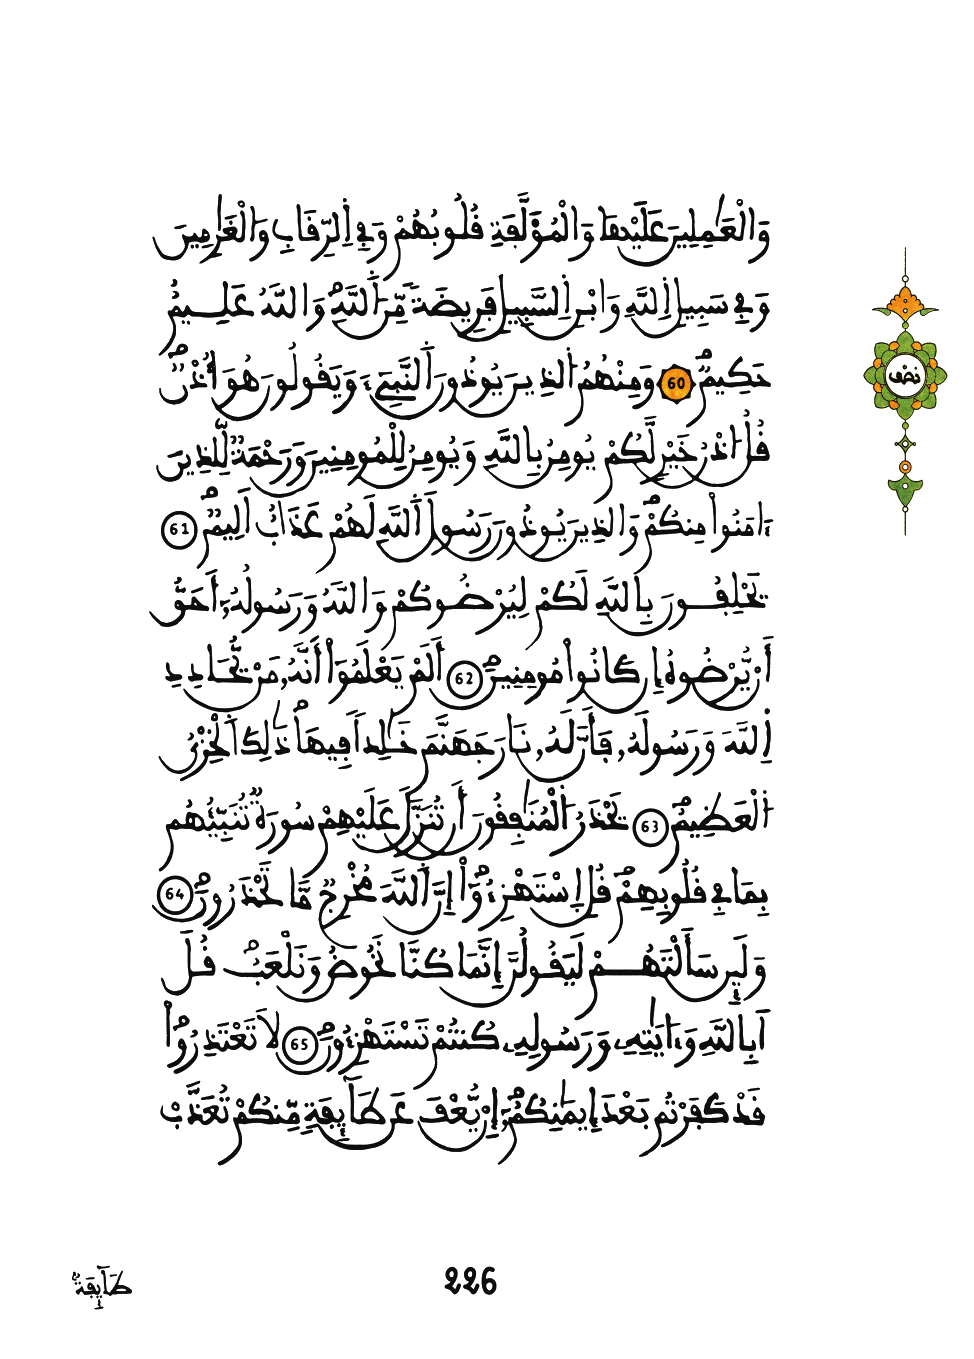 وَالْعَٰمِلِينَ عَلَيْهَا وَالْمُؤَلَّفَةِ قُلُوبُهُمْ وَفِي اِ۬لرِّقَابِ وَالْغَٰرِمِينَ
وَفِي سَبِيلِ اِ۬للَّهِ وَابْنِ اِ۬لسَّبِيلِ فَرِيضَةٗ مِّنَ اَ۬للَّهِۖ وَاللَّهُ عَلِيمٌ
حَكِيمٞۖ 60 وَمِنْهُمُ اُ۬لذِينَ يُوذُونَ اَ۬لنَّبِيَٓءَ وَيَقُولُونَ هُوَ أُذُنٞۖ
قُلُ ا۟ذْنُ خَيْرٖ لَّكُمْ يُومِنُ بِاللَّهِ وَيُومِنُ لِلْمُومِنِينَ وَرَحْمَةٞ لِّلذِينَ
ءَامَنُواْ مِنكُمْۖ وَالذِينَ يُوذُونَ رَسُولَ اَ۬للَّهِ لَهُمْ عَذَابٌ أَلِيمٞۖ 61
يَحْلِفُونَ بِاللَّهِ لَكُمْ لِيُرْضُوكُمْ وَاللَّهُ وَرَسُولُهُۥٓ أَحَقُّ
أَنْ يُّرْضُوهُ إِن كَانُواْ مُومِنِينَۖ 62 أَلَمْ يَعْلَمُوٓاْ أَنَّهُۥ مَنْ يُّحَادِدِ
اِ۬للَّهَ وَرَسُولَهُۥ فَأَنَّ لَهُۥ نَارَ جَهَنَّمَ خَٰلِداٗ فِيهَاۖ ذَٰلِكَ اَ۬لْخِزْيُ
اُ۬لْعَظِيمُۖ 63 يَحْذَرُ اُ۬لْمُنَٰفِقُونَ أَن تُنَزَّلَ عَلَيْهِمْ سُورَةٞ تُنَبِّئُهُم
بِمَا فِي قُلُوبِهِمْۖ قُلِ اِ۪سْتَهْزِءُوٓاْ إِنَّ اَ۬للَّهَ مُخْرِجٞ مَّا تَحْذَرُونَۖ 64
وَلَئِن سَأَلْتَهُمْ لَيَقُولُنَّ إِنَّمَا كُنَّا نَخُوضُ وَنَلْعَبُۖ قُلَ
اَبِاللَّهِ وَءَايَٰتِهِۦ وَرَسُولِهِۦ كُنتُمْ تَسْتَهْزِءُونَۖ 65 لَا تَعْتَذِرُواْۖ
قَدْ كَفَرْتُم بَعْدَ إِيمَٰنِكُمْۖ إِنْ يُّعْفَ عَن طَآئِفَةٖ مِّنكُمْ تُعَذَّبْ
نصف
طَآئِفَةُۢ
226